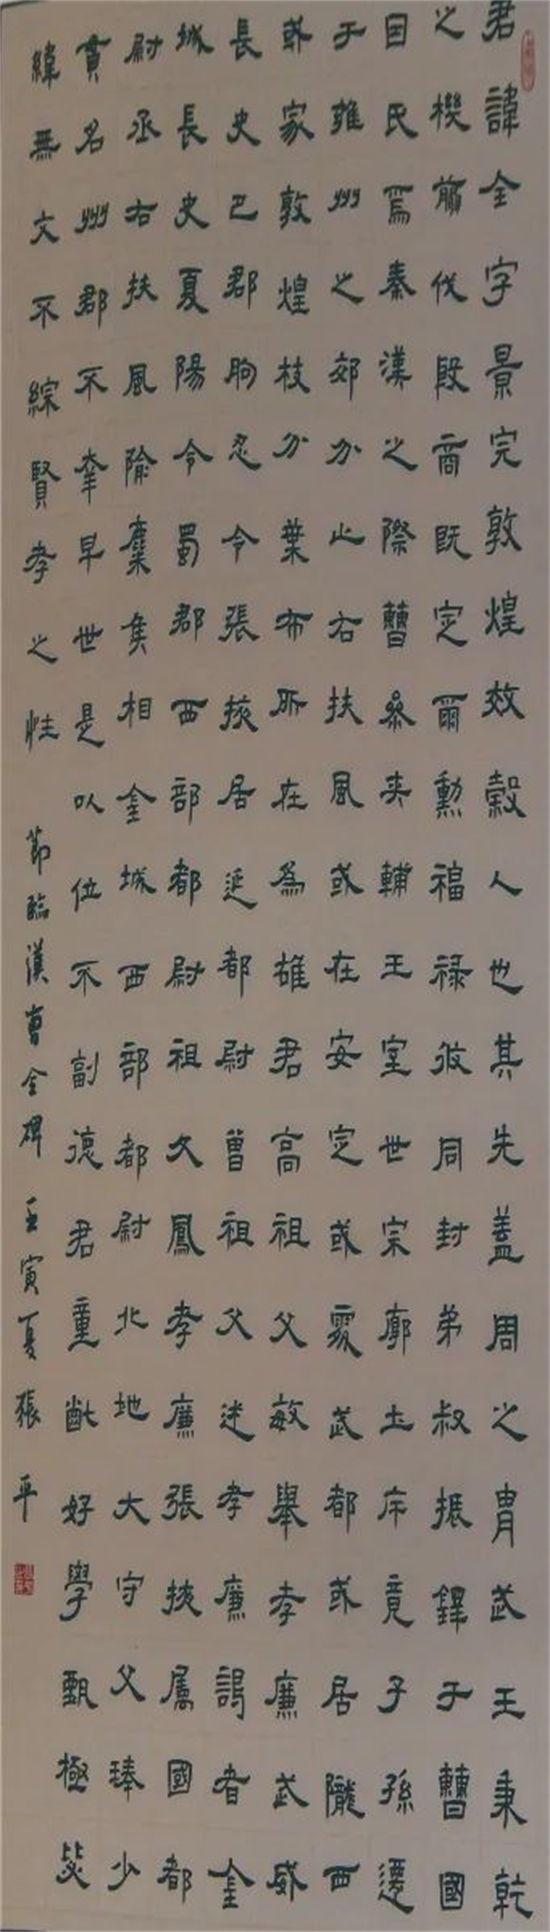 君諱全字景完敦煌效穀人也其先蓋周之胄武王秉乾
之機翦伐殷商既定爾勳福祿攸同封弟叔振鐸于曹國
因氏焉秦漢之際曹參夾輔王室世宗廓土斥竟子孫遷
于雍州之郊分止右扶風或在安定或處武都或居隴西
或家敦煌枝分葉布所在為雄君高祖父敏舉孝廉武威
長史巴郡朐忍令張掖居延都尉曾祖父述孝廉謁者金
城長史夏陽令蜀郡西部都尉祖父鳳孝廉張掖屬國都
尉丞右扶風隃麋侯相金城西部都尉北地大守父琫少
貫名州郡不幸早世是以位不副德君童齔好學甄極毖
緯無文不綜賢孝之性 節臨漢曹全碑 壬寅夏 張平